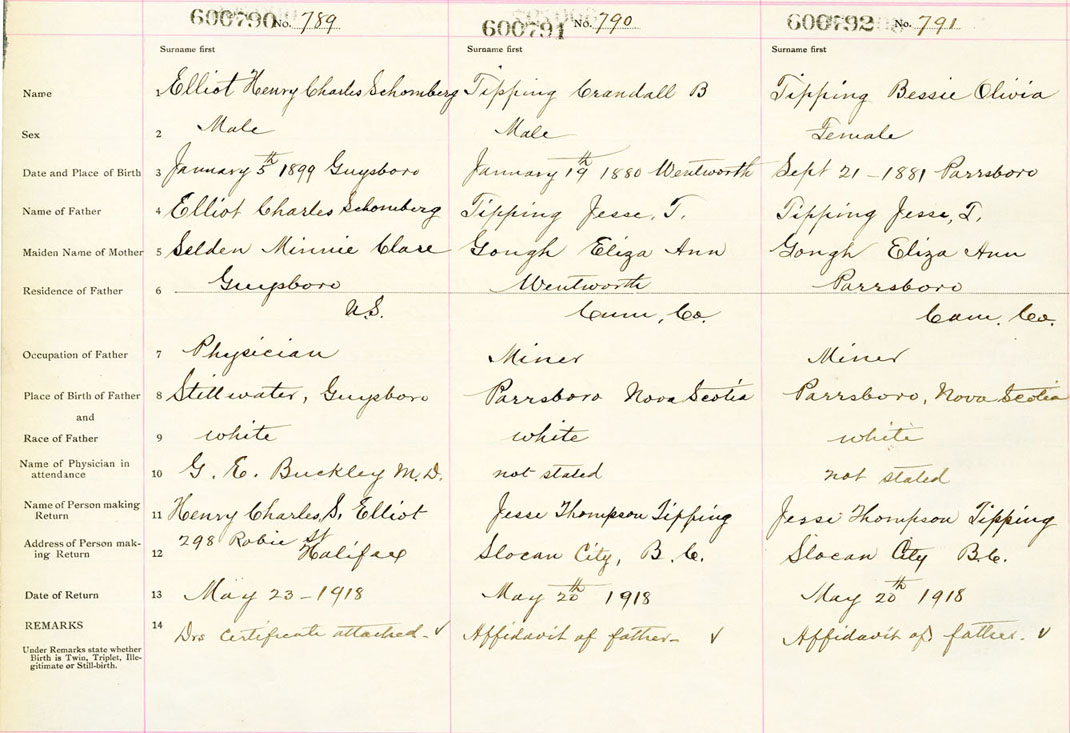 600790 No. 789 600791 No. 790 600792 No. 791
Surname first Surname first Surname first
Name 1 Elliot Henry Charles Schomberg Tipping Crandall B Tipping Bessie Olivia
Sex 2 Male Male Female
Date and Place of Birth 3 January 5th 1899 Guysboro January 19th 1880 Wentworth Sept 21 - 1881 Parrsboro
Name of Father 4 Elliot Charles Schomberg Tipping Jesse, T. Tipping Jesse, T.
Maiden Name of Mother 5 Selden Minnie Clare Gough Eliza Ann Gough Eliza Ann
Residence of Father 6 Guysboro Wentworth Parrsboro
N.S. Cum, Co. Cum. Co.
Occupation of Father 7 Physician Miner Miner
Place of Birth of Father 8 Stillwater, Guysboro Parrsboro Nova Scotia Parrsboro, Nova Scotia
and
Race of Father 9 white white white
Name of Physician in
attendance 10 G. E. Buckley M.D. not stated not stated
Name of Person making
Return 11 Henry Charles S. Elliot Jesse Thompson Tipping Jesse Thompson Tipping
Address of Person mak- 298 Robie St
ing Return 12 Halifax Slocan City, B.C. Slocan City B.C.
Date of Return 13 May 23 - 1918 May 20th 1918 May 20th 1918
REMARKS 14 Drs certificate attached - ✓ Affidavit of father - ✓ Affidavit of father - ✓
Under Remarks state whether
Birth is Twin, Triplet, Ille-
gitimate or Still-birth.